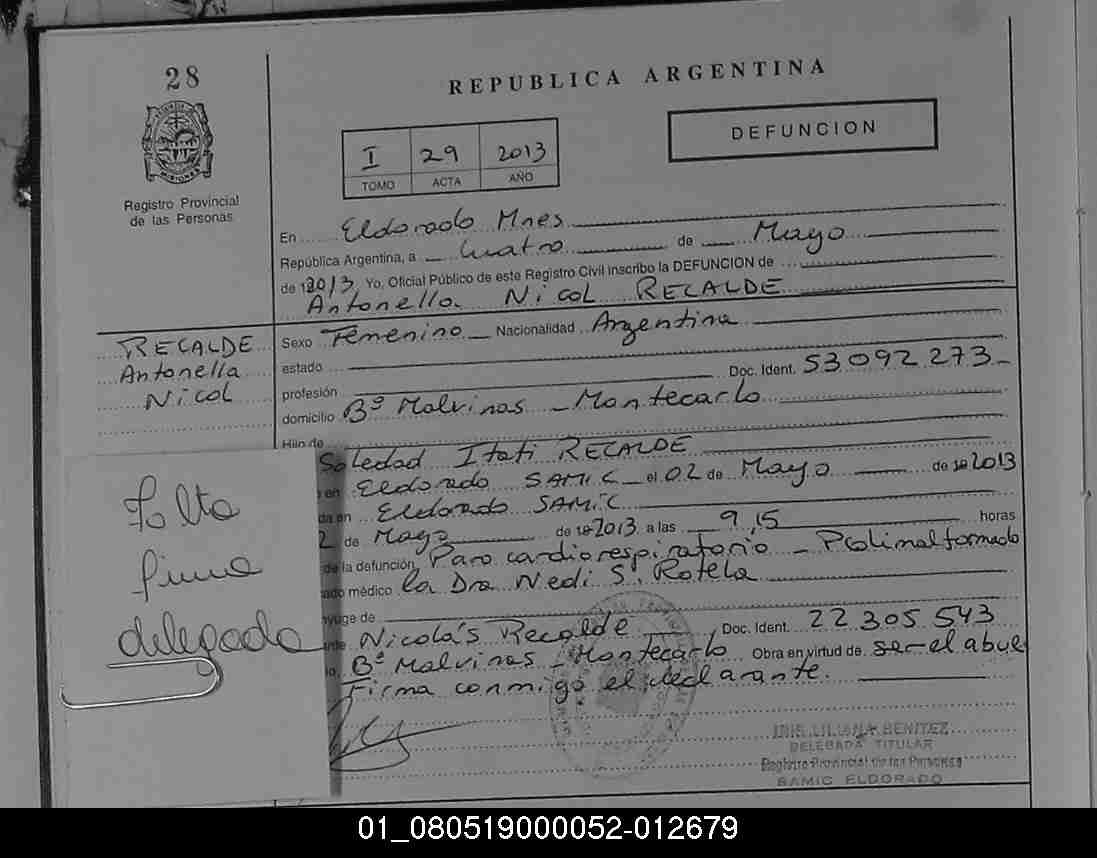 28
REPUBLICA ARGENTINA
DEFUNCION
I 29 2013
TOMO ACTA AÑO
MISIONES
Registro Provincial
de las Personas
En Eldorado Mnes
República Argentina, a Cuatro de Mayo
de 2013 Yo, Oficial Público de este Registro Civil inscribo la DEFUNCION de
Antonella Nicol RECALDE
RECALDE
Antonella
Nicol
Sexo Femenino Nacionalidad Argentina
estado
Doc. Ident. 53 092 273
profesión
domicilio Bº Malvinas - Montecarlo
Hijo de
Soledad Itati RECALDE
en Eldorado SAMIC el 02 de Mayo de 2013
da en Eldorado SAMIC
2 de Mayo de 2013 a las 9,15 horas
de la defunción Paro cardiorespiratorio - Polimalformado
ado médico la Dra Nedi S. Rotela
nyuge de
ante Nicolás Recalde Doc. Ident. 22 305 543
io. Bº Malvinas - Montecarlo Obra en virtud de ser el abue
Firma conmigo el declarante.
Falta
firma
delegada
IRIS LILIANA BENITEZ
DELEGADA TITULAR
Registro Provincial de las Personas
SAMIC ELDORADO
01_080519000052-012679